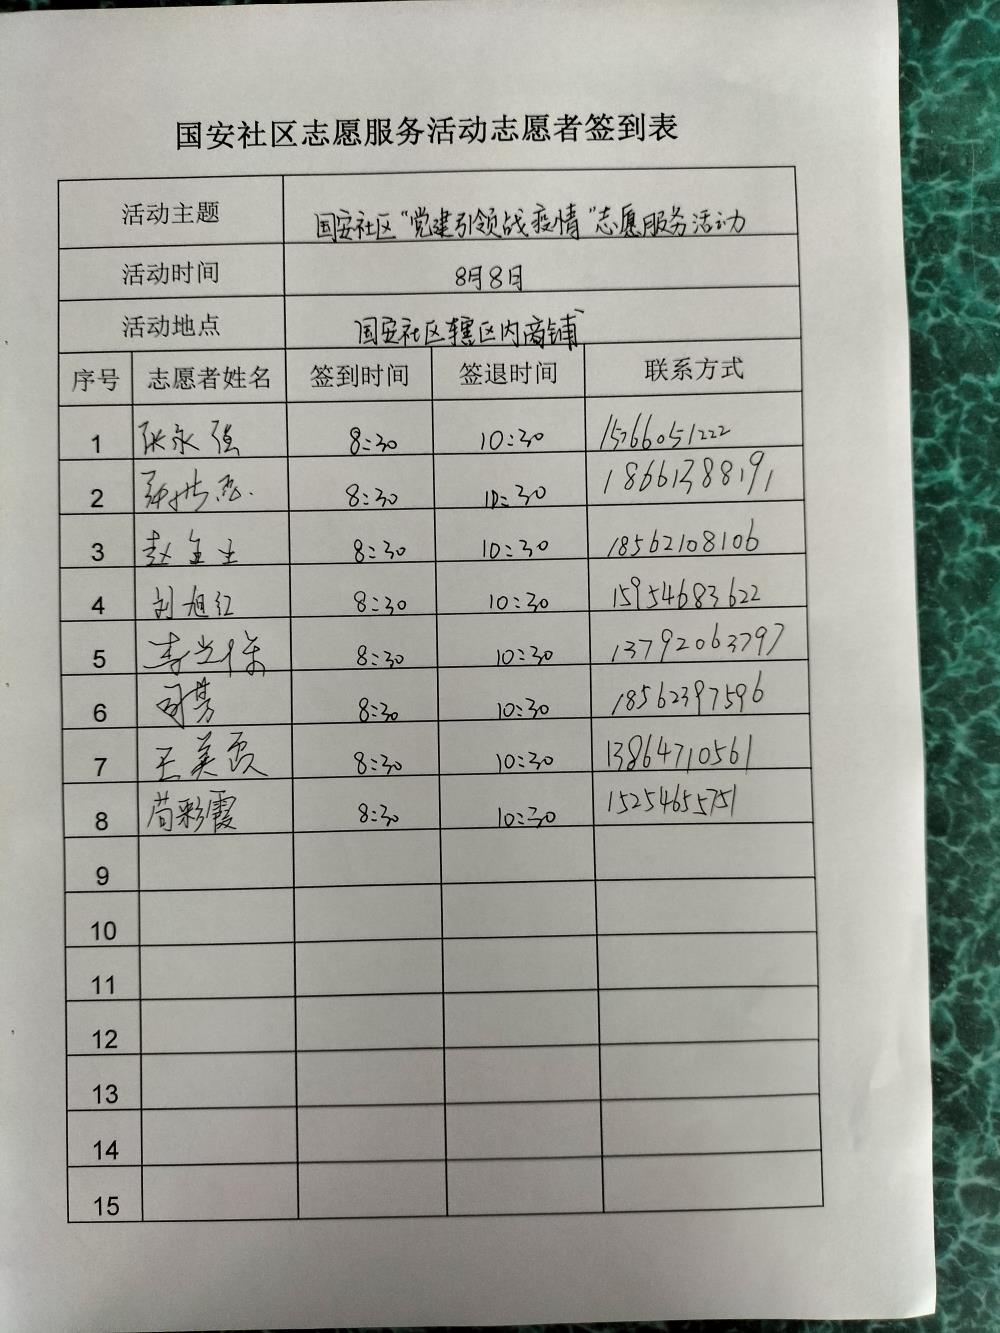 国安社区志愿服务活动志愿者签到表
活动主题 国安社区“党建引领战疫情”志愿服务活动
活动时间 8月8日
活动地点 国安社区辖区内商铺
序号 志愿者姓名 签到时间 签退时间 联系方式
1 张永强 8:30 10:30 15766051222
2 8:30 10:30 18661388191
3 赵金土 8:30 10:30 18562108106
4 刘旭红 8:30 10:30 15954683622
5 8:30 10:30 13792063797
6 8:30 10:30 18562397596
7 王美 8:30 10:30 13864710561
8 苟彩霞 8:30 10:30 15254655751
9
10
11
12
13
14
15